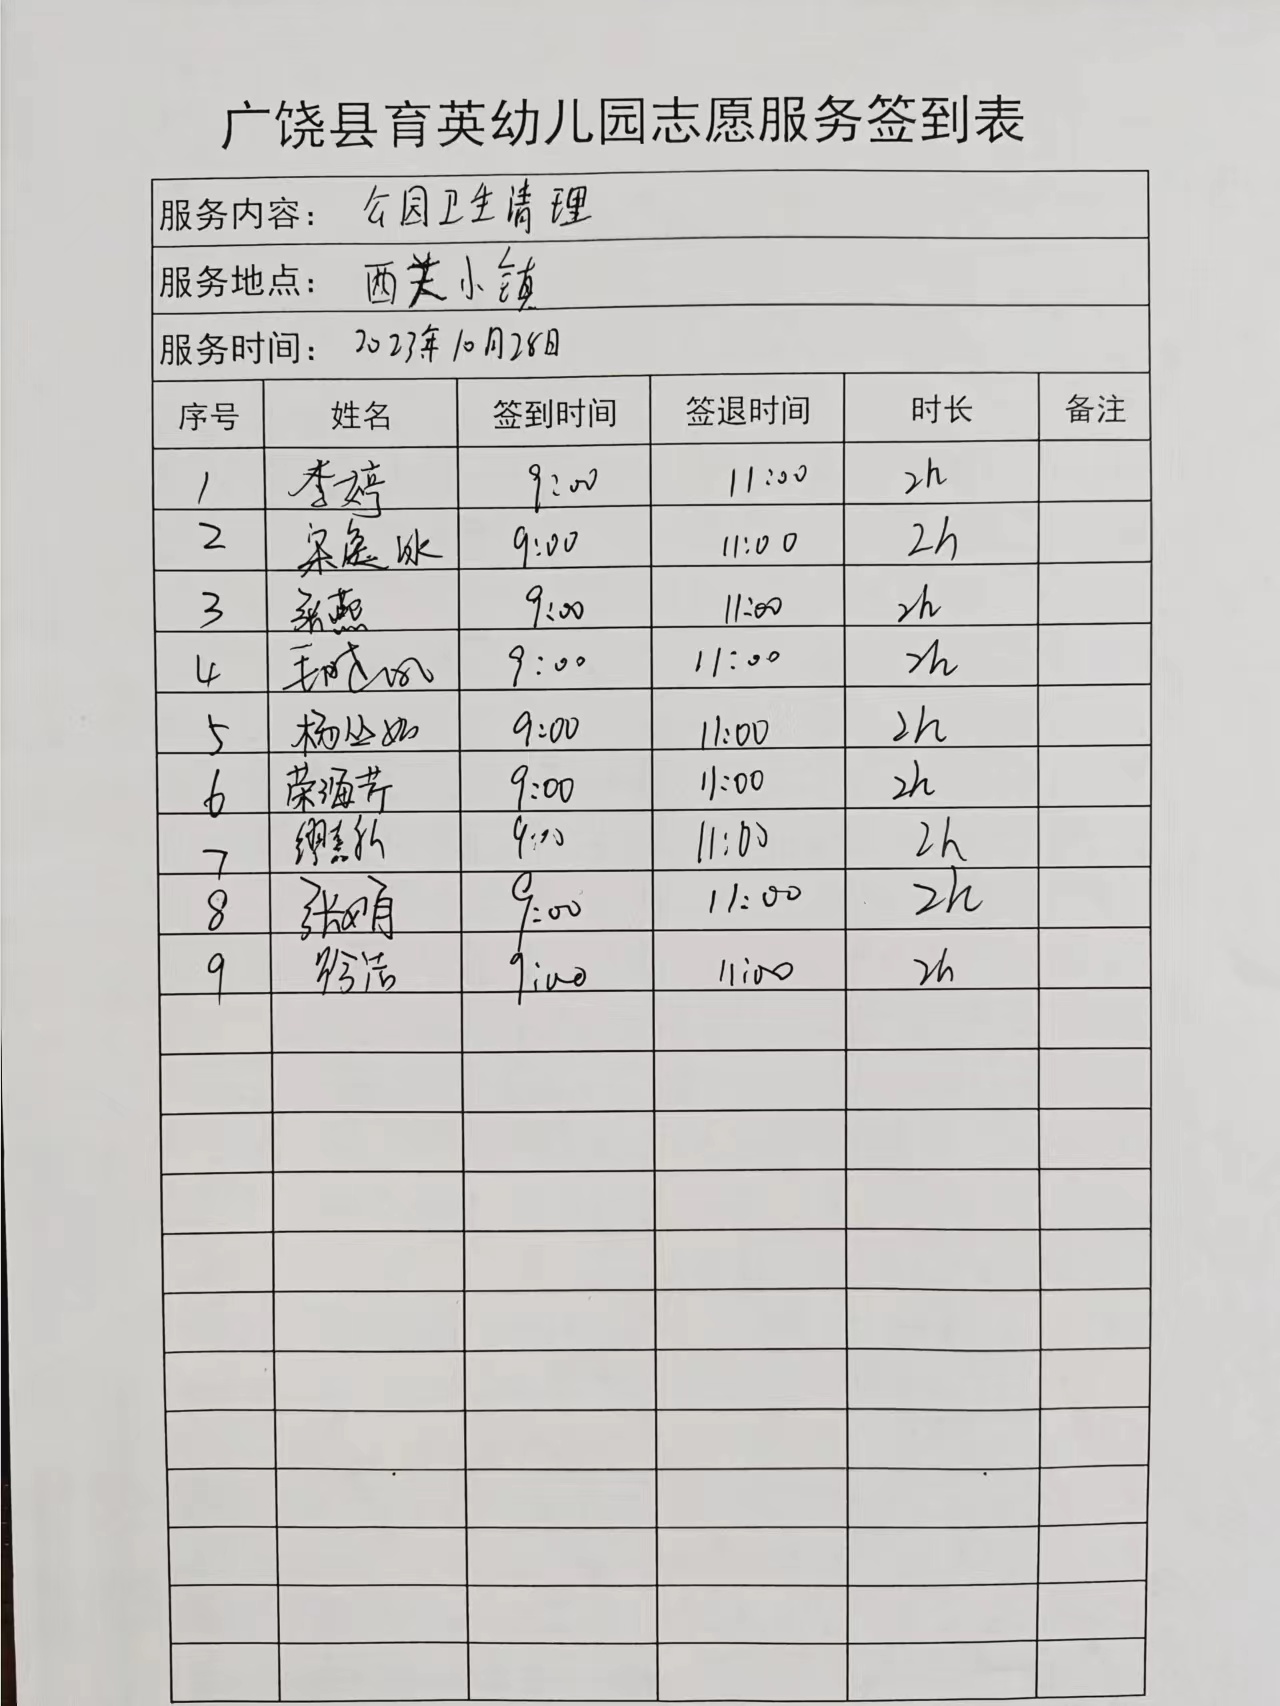 广饶县育英幼儿园志愿服务签到表
服务内容： 公园卫生清理
服务地点： 西关小镇
服务时间： 2023年10月28日
序号 姓名 签到时间 签退时间 时长 备注
1 李婷 9:00 11:00 2h
2 9:00 11:00 2h
3 9:00 11:00 2h
4 9:00 11:00 2h
5 杨丛如 9:00 11:00 2h
6 荣海芹 9:00 11:00 2h
7 9:00 11:00 2h
8 9:00 11:00 2h
9 徐洁 9:00 11:00 2h